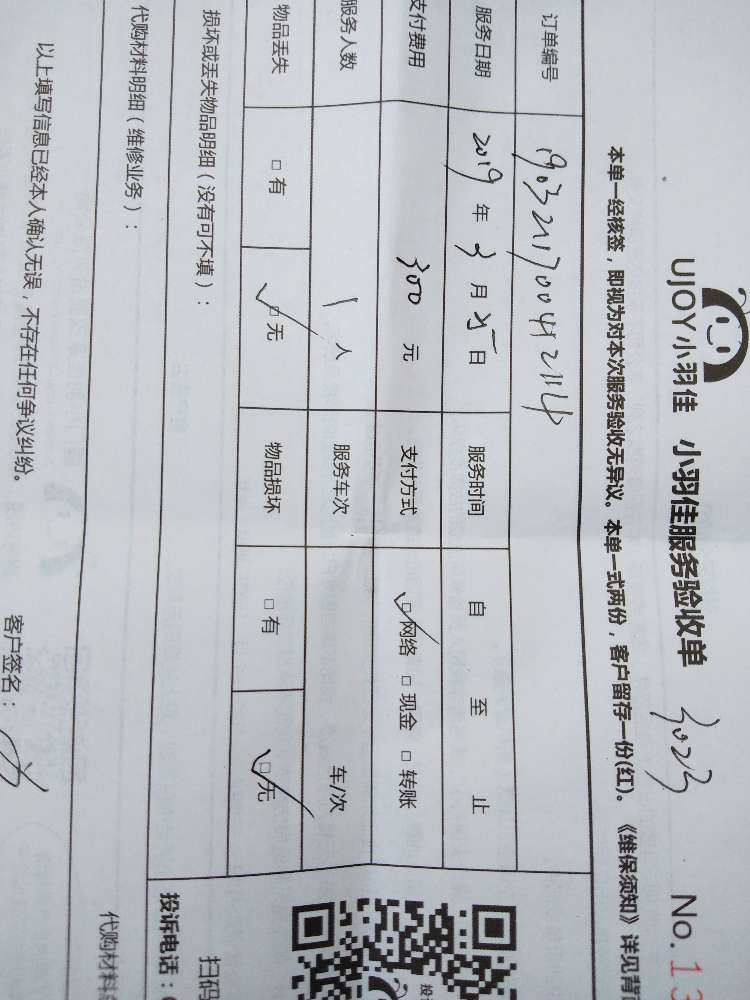 UJOY小羽佳 小羽佳服务验收单 3023 No.13
本单一经核签，即视为对本次服务验收无异议。本单一式两份，客户留存一份(红)。《维保须知》详见背
订单编号
服务日期 2019 年 3 月 25 日 服务时间 自 至 止
支付费用 300 元 支付方式 □网络 □现金 □转账
服务人数 1 人 服务车次 车/次
物品丢失 □有 □无 物品损坏 □有 □无
损坏或丢失物品明细（没有可不填）：
代购材料明细（维修业务）：
以上填写信息已经本人确认无误，不存在任何争议纠纷。
客户签名：
投诉
扫码
投诉电话：
代购材料